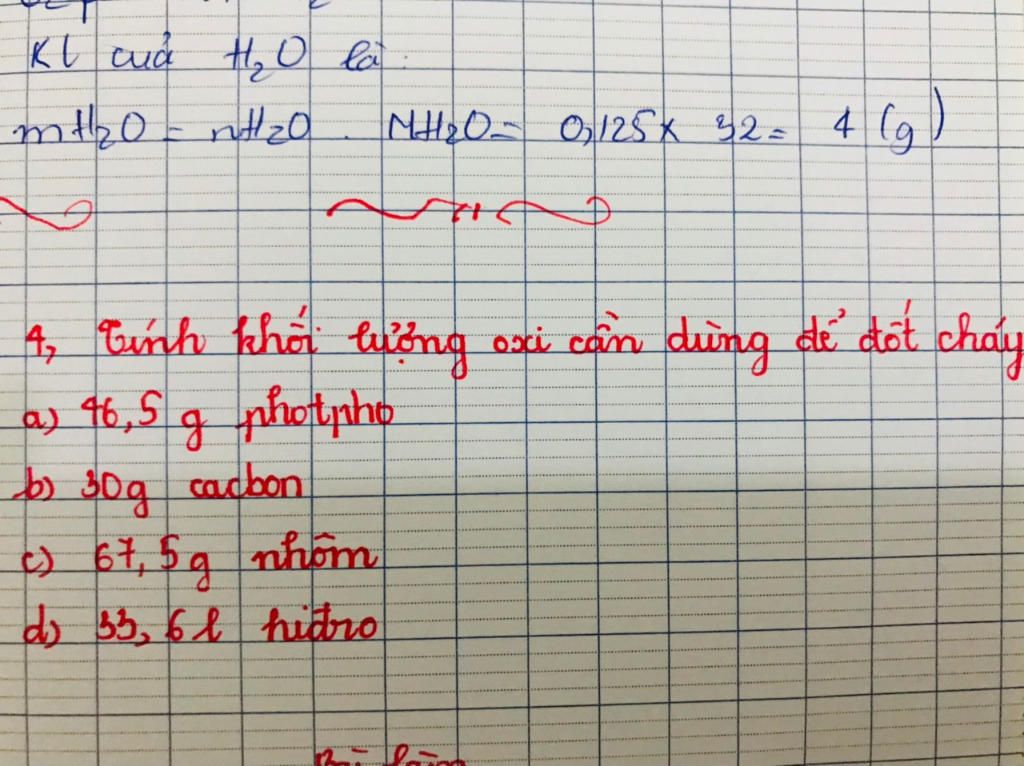 Kl cuả H₂O là:
mH₂O = nH₂O . MH₂O = 0,125 x 32 = 4 (g)
4, Tính khối lượng oxi cần dùng để đốt cháy
a) 46,5 g photpho
b) 30g cacbon
c) 67,5g nhôm
d) 33,6 l hiđro